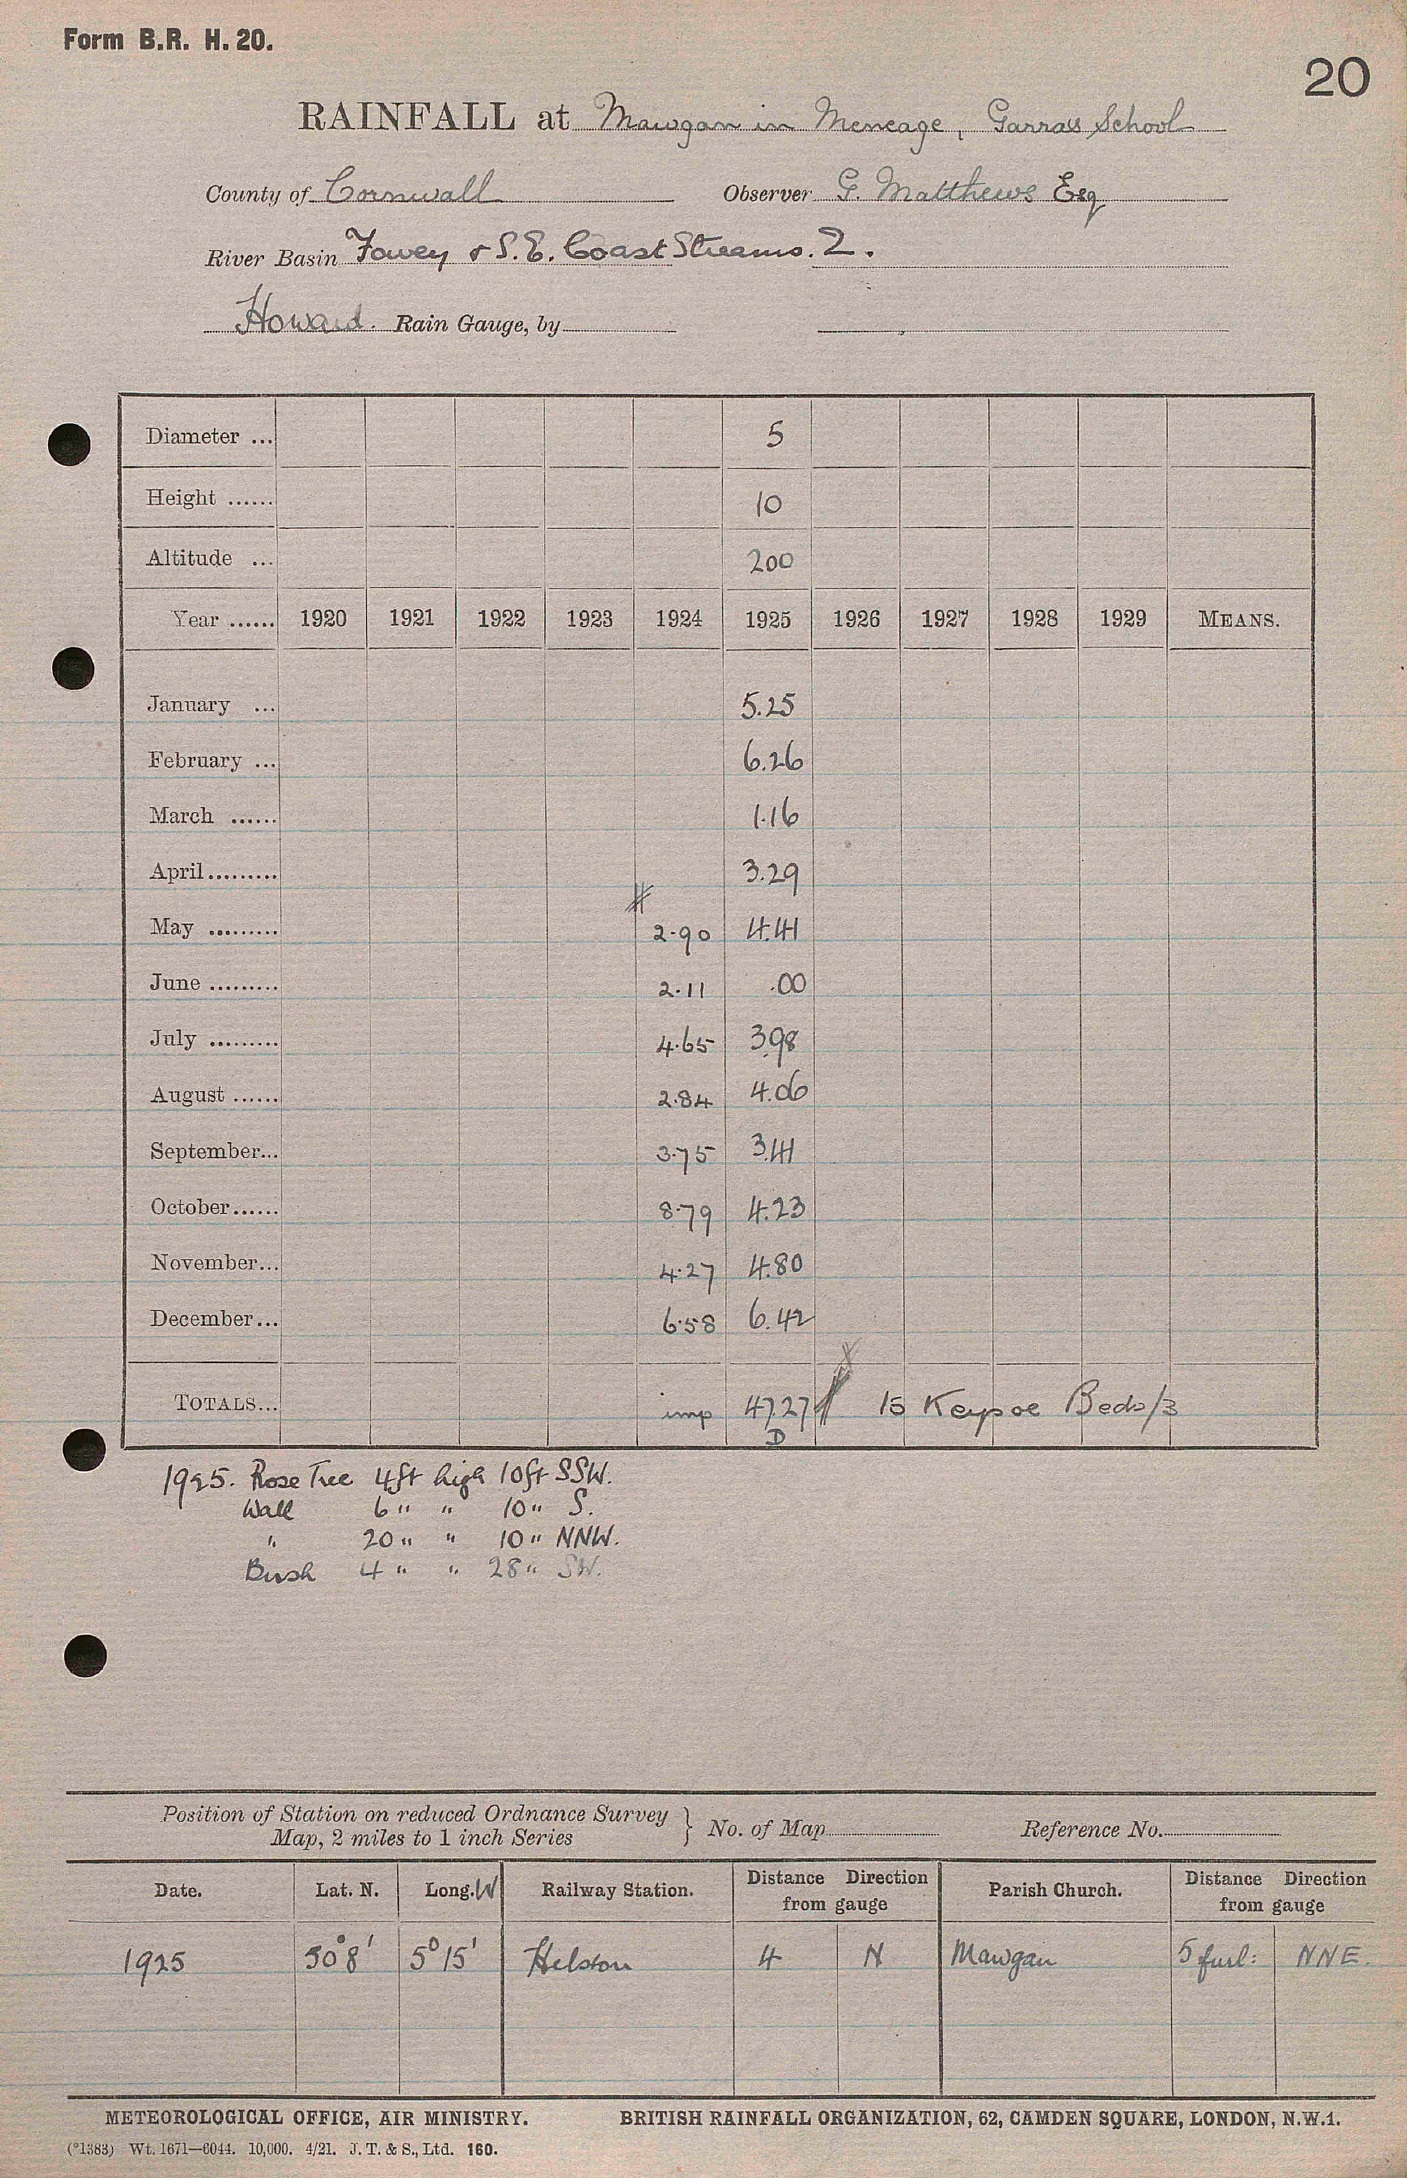 Form B.R. H. 20.
20
RAINFALL at Mawgan in Meneage, Garras School
County of Cornwall Observer G. Matthews Esq
River Basin Fowey & S.E. Coast Streams. 2.
Howard. Rain Gauge, by
Diameter ... 5
Height ...... 10
Altitude ... 200
Year ...... 1920 1921 1922 1923 1924 1925 1926 1927 1928 1929 MEANS.
January ... 5.25
February ... 6.26
March ...... 1.16
April......... 3.29
May ......... 2.90 4.41
June ......... 2.11 .00
July ......... 4.65 3.98
August ...... 2.84 4.06
September... 3.75 3.41
October...... 8.79 4.23
November... 4.27 4.80
December... 6.58 6.42
TOTALS... imp 47.27 15 Keysoe Beds/3
D
1925. Rose Tree 4ft high 10ft SSW.
Wall 6 " " 10 " S.
" 20 " " 10 " NNW.
Bush 4 " " 28 " SW.
Position of Station on reduced Ordnance Survey
Map, 2 miles to 1 inch Series } No. of Map Reference No.
Date. Lat. N. Long. W Railway Station. Distance Direction from gauge Parish Church. Distance Direction from gauge
1925 50°8' 5°15' Helston 4 N Mawgan 5 furl: NNE.
METEOROLOGICAL OFFICE, AIR MINISTRY. BRITISH RAINFALL ORGANIZATION, 62, CAMDEN SQUARE, LONDON, N.W.1.
(*1383) Wt. 1671—6044. 10,000. 4/21. J. T. & S., Ltd. 160.